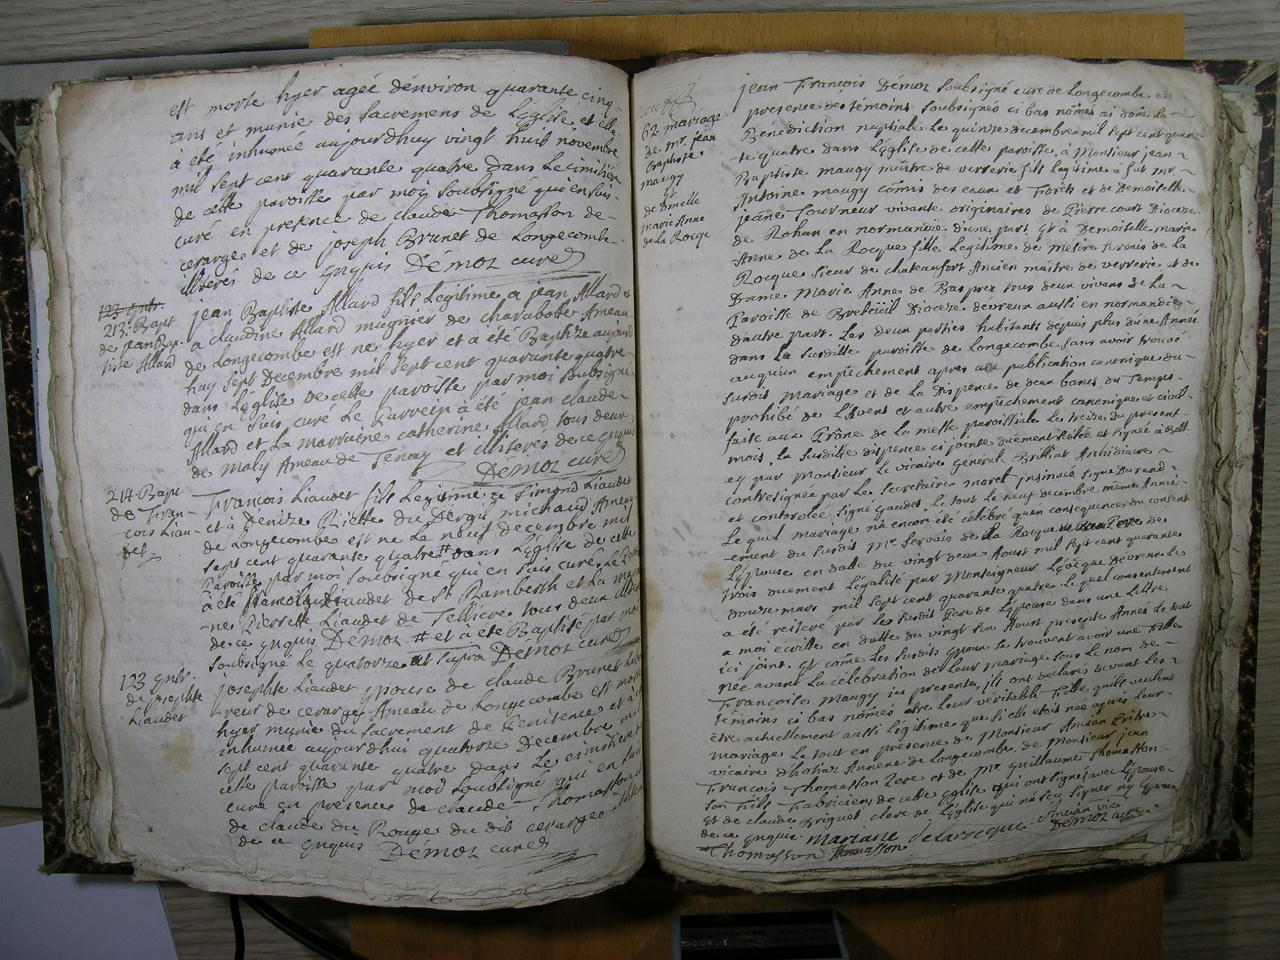 est morte hyer agée dénviron quarante cinq
ans et munie des sacremens de Léglise, et elle
à été inhumée aujourdhuy vingt huit novembre
mil sept cent quarante quatre dans Le cimitiere
de cette paroisse par moy soubsigné qui en suis
curé en presence de claude Thomasson de
cerarge et de joseph Brunet de Longecombe
illiterés de ce gnquis Démoz curé
123 gntr.
213e Bapt
de jean Bap-
tiste Allard
jean Baptiste Allard fils Legitime a jean Allard et
a claudine Allard mugnier de charabotte Ameau
de Longecombe est ne hyer et a été Baptize aujourd
huy sept Decembre mil sept cent quarante quatre
dans Léglise de cette paroisse par moi soubsigné
qui en suis curé Le parrein à été jean claude
Allard et La marraine catherine Allard tous deux
de maly Ameau de Tenay et illiteres de ce gnquis
Démoz curé
214 Bapt
de Fran-
cois Liau-
det
François Liaudet fils Legitime a Simond Liaudet
et à Denize Riette du Dergit michaud Ameau
de Longecombe est ne Le neuf decembre mil
sept cent quarante quatre # dans Léglise de cette
Paroisse par moi soubsigné qui en suis curé, Le
à été francois Liaudet de St Rambert et La
ne Pierrette Liaudet de Telliere tous deux
de ce gnquis Démoz # et a été Baptisé par moi
soubsigné Le quatorze ut supra Demoz curé
123 gntr.
de josephte
Liaudet
josephte Liaudet epouse de claude Brunet
reur de cerargy Ameau de Longecombe est morte
hyer munie du sacrement de Penitence et à été
inhumée aujourdhui quatorze Decembre mil
sept cent quarante quatre dans Le cimitiere
cette paroisse par moi soubsigné qui en suis
curé en presence de claude Thomasson
de claude du Rouge du dit cerargee
de ce gnquis Démoz curé
62 mariage
de mr. jean
Baptiste
maugy
de Dmelle
marie Anne
de La Rocque
jean François Démoz soubsigné curé de Longecombe en
presence des témoins soubsignés ci bas nômés ai donné la
Benediction nuptiale Le quinze decembre mil sept cent quaran
te quatre dans Léglise de cette paroisse, à Monsieur jean
Baptiste maugy maitre de verrerie fils Legitime a fut mr.
Antoine maugy cômis des eaux et Forêts et de Demoiselle
jeanne Tourneur vivante originaires de Pierre court Dioceze
de Rohan en normandie d'une part, gt à Demoiselle marie
Anne de La Rocque fille Legitime de mesire servais de La
Rocque sieur de chateaufort Ancien maitre de verrerie et de
Dame Marie Anne de Basprez tous deux vivans de La
Paroisse de Breteüil Dioceze devreux aussi en normandie
dautre part. Les deux parties habitants depuis plus dune Année
dans La susditte paroisse de Longecombe sans avoir trouvé
auqu'un empêchement apres une publication canonique du
susdit mariage et de la Dispence de deux bancs, du Temps
prohibé de L'Avent et autre empêchement canonique et civil
faite aux Prône de La messe paroissiale Le treize du present
mois, La susditte dispence ci jointe duëment scelée et signée à Bell
ey par Monsieur Le vicaire général Brillat Archidiacre
contresignée par Le secretaire moret insinuée signé Durand
et controlée signé gaudet, Le tout Le neuf decembre même Année
Le quel mariage n'a encore été célébré qu'en consequence du consent
ement du susdit Mr. servais de La Rocque Pere de
L'épouse en datte du vingt deux Aoust mil sept cent quarante
trois duement légalisé par Monseigneur L'évêque Devreux Le
douze mars mil sept cent quarante quatre Le quel consentement
a été reïteré par Le susdit Pere de L'épouse dans une Lettre
a moi ecritte en datte du vingt six Aoust presente Année Le tout
ici joint. gt come Les susdits epoux se trouvent avoir une Fille
née avant La célébration de Leur mariage sous Le nom de
Françoise Maugy ici presente, ils ont declarés devant Les
témoins ci bas nômés etre Leur véritable Fille, qu'ils veulent
être actuellement aussi Légitime que si elle étoit née aprés Leur
mariage Le tout en presence de Monsieur Ancian Prêtre
vicaire d'hotiaz Annexe de Longecombe, de Monsieur jean
François Thomasson Pere et de Mr. guillaume Thomasson
son Fils Fabriciens de cette église qui ont signé avec L'épouse
et de claude Briguet clerc de L'église qui n'a sçu signer ny
de ce gnquis. Mariane Delarocque. Ancian vic.
Thomasson Thomasson Démoz curé